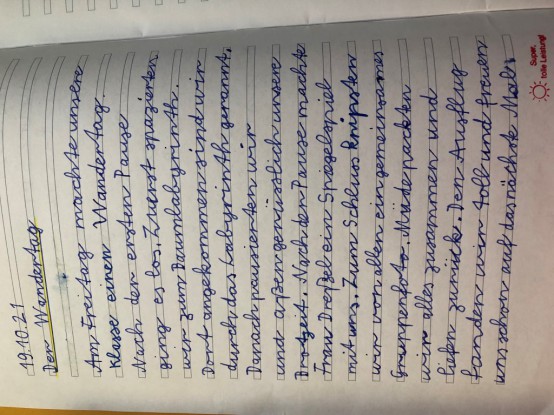 19.10.21
Der Wandertag
Am Freitag machte unsere
Klasse einen Wandertag.
Nach der ersten Pause
ging es los. Zuerst spazierten
wir zum Baumlabyrinth.
Dort angekommen sind wir
durch das Labyrinth gerannt.
Danach pausierten wir
und aßen genüsslich unsere
Brotzeit. Nach der Pause machte
Frau Dreßel ein Spiegelspiel
mit uns. Zum Schluss knipsten
wir von allen ein gemeinsames
Gruppenfoto. Müde packten
wir alles zusammen und
liefen zurück. Den Ausflug
fanden wir toll und freuen
uns schon auf das nächste Mal.
Super,
tolle Leistung!